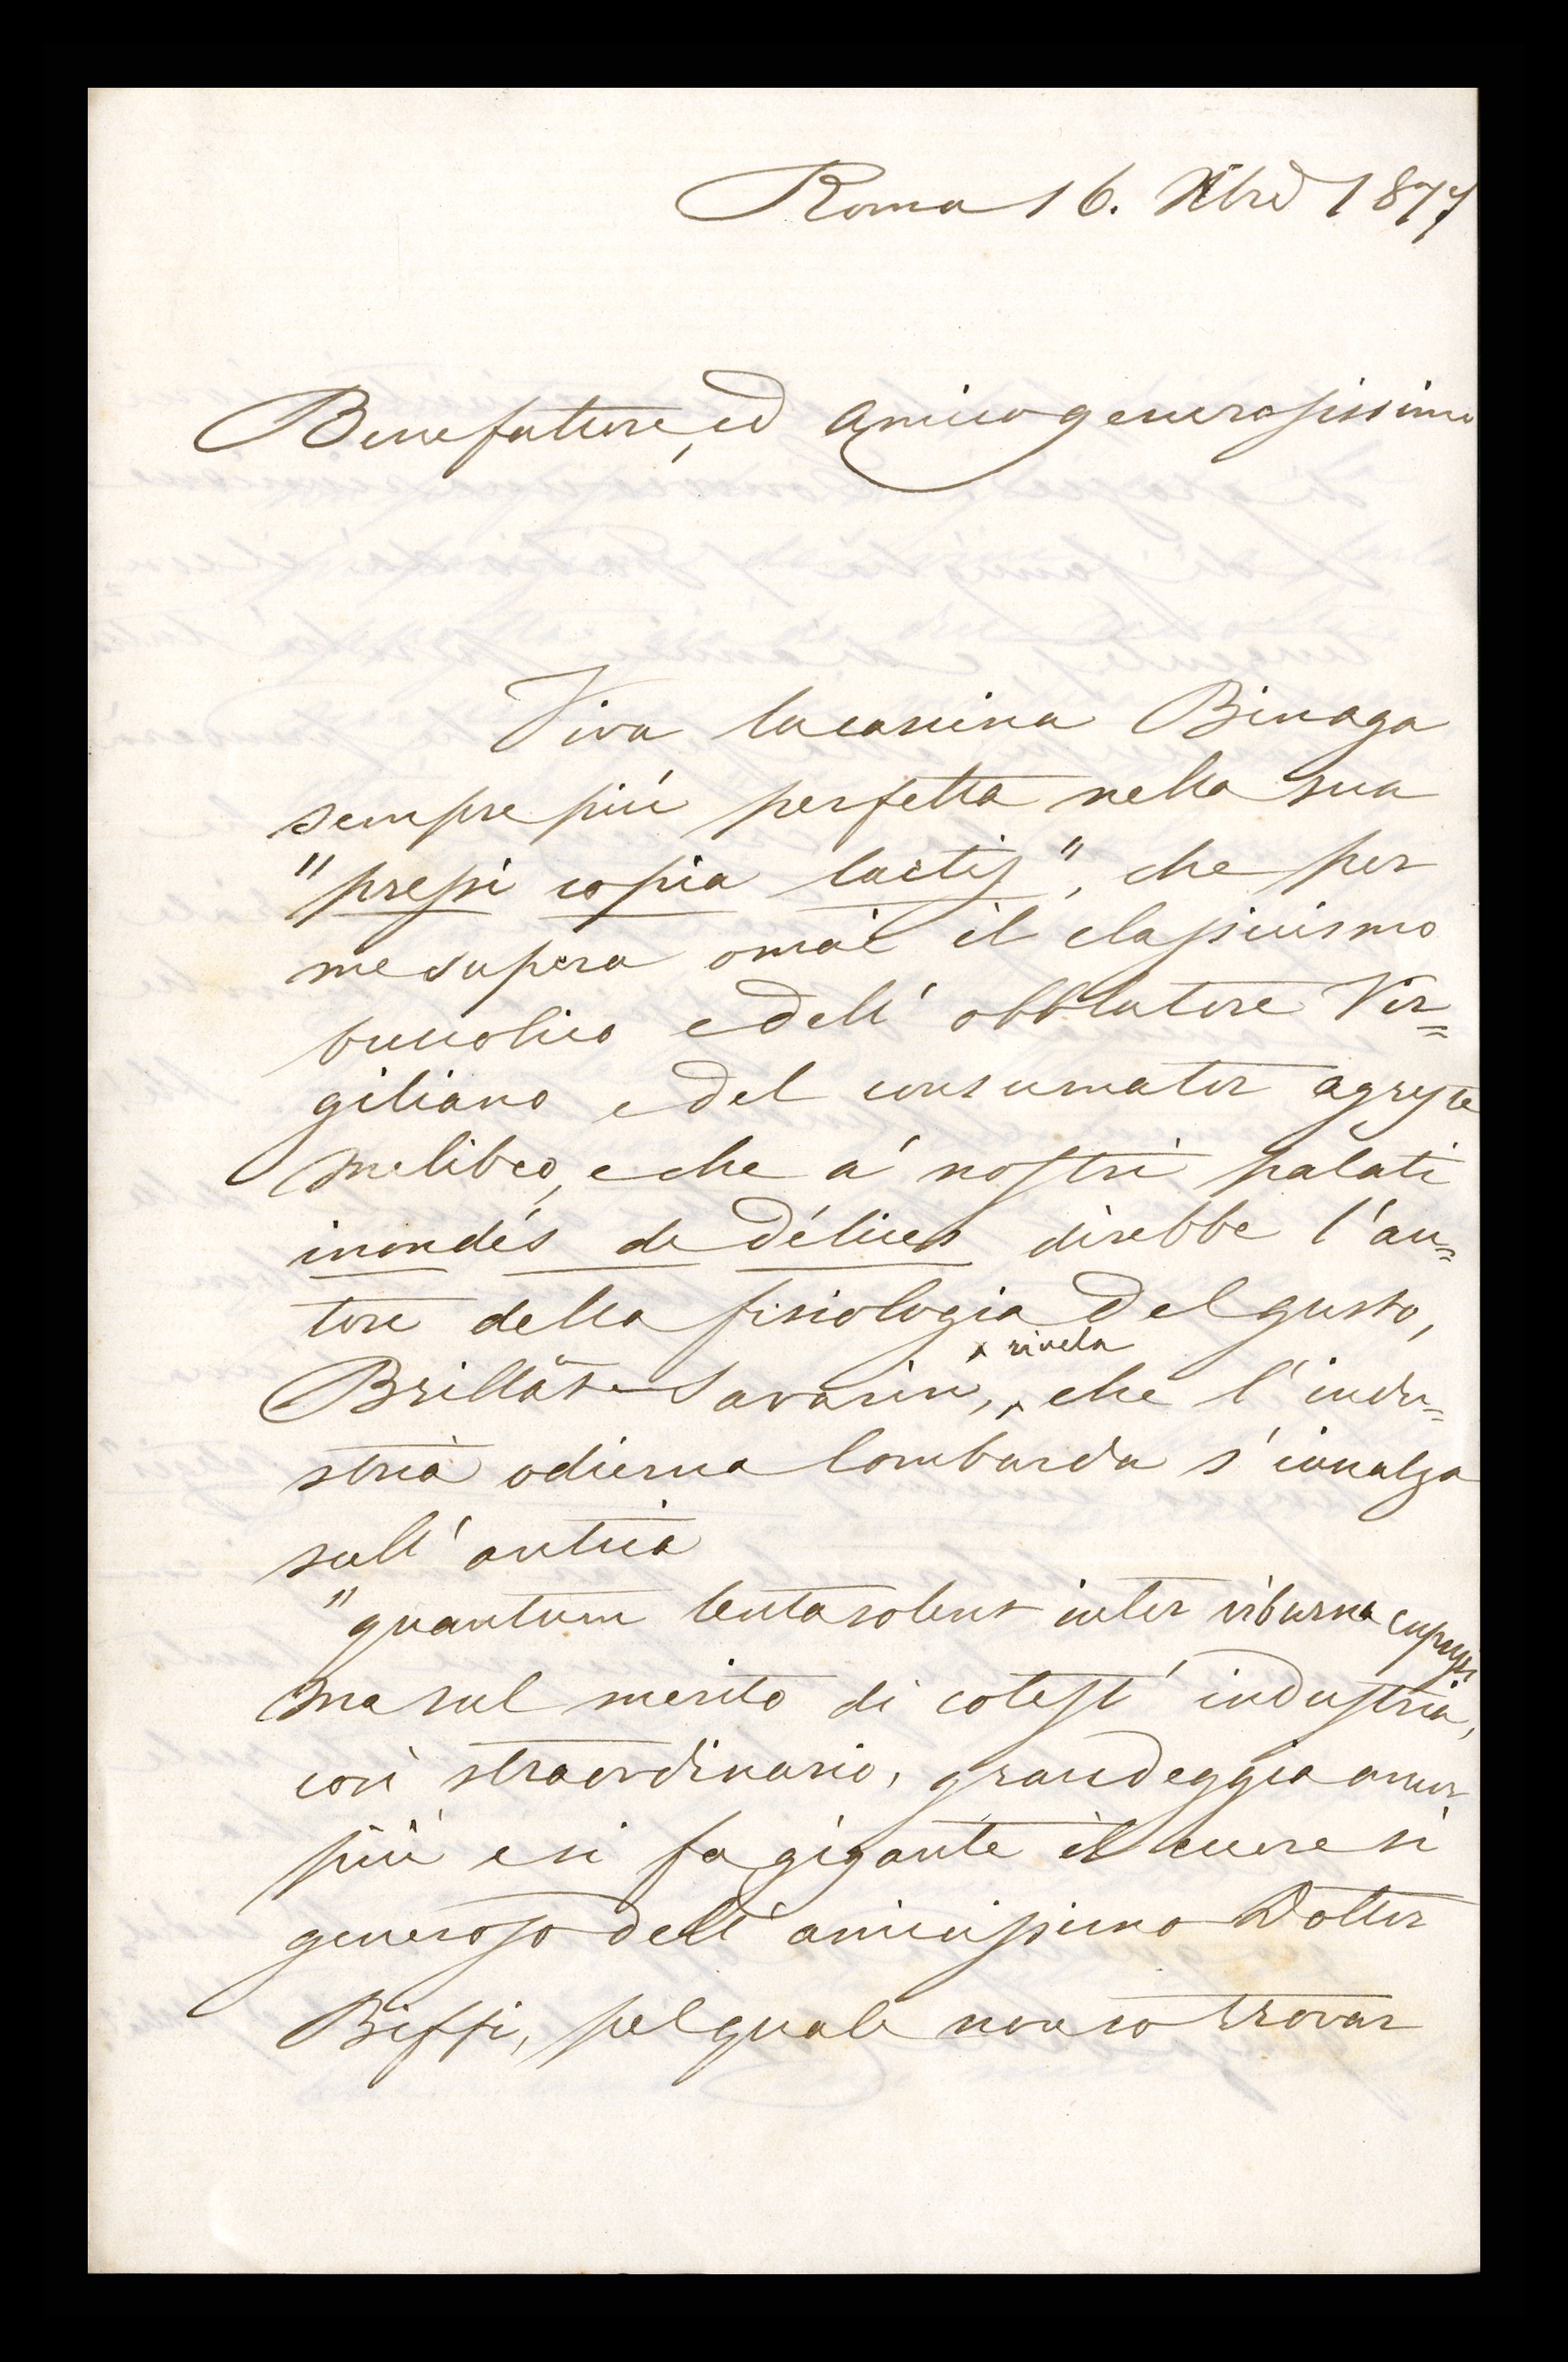 Roma 16. Xbre 1877
Benefattore, ed amico generosissimo
Viva la cascina Binaga
sempre più perfetta nella sua
"pressi copia lactis", che per
me supera omai il classicismo
buccolico e dell' obblatore Vir=
giliano e del consumator agreste
Melibeo, e che a' nostri palati
inondés de délices direbbe l'au=
tore della fisiologia del gusto,
Brillat-Savarin, rivela che l'indu=
stria odierna lombarda s'innalza
sull' antica
"quantum lenta solent inter viburna cupressi
Ma sul merito di cotest' industria,
così straordinario, grandeggia ancor
più e si fa gigante il cuore sì
generoso dell' amicissimo Dottor
Biffi, pel quale non so trovar